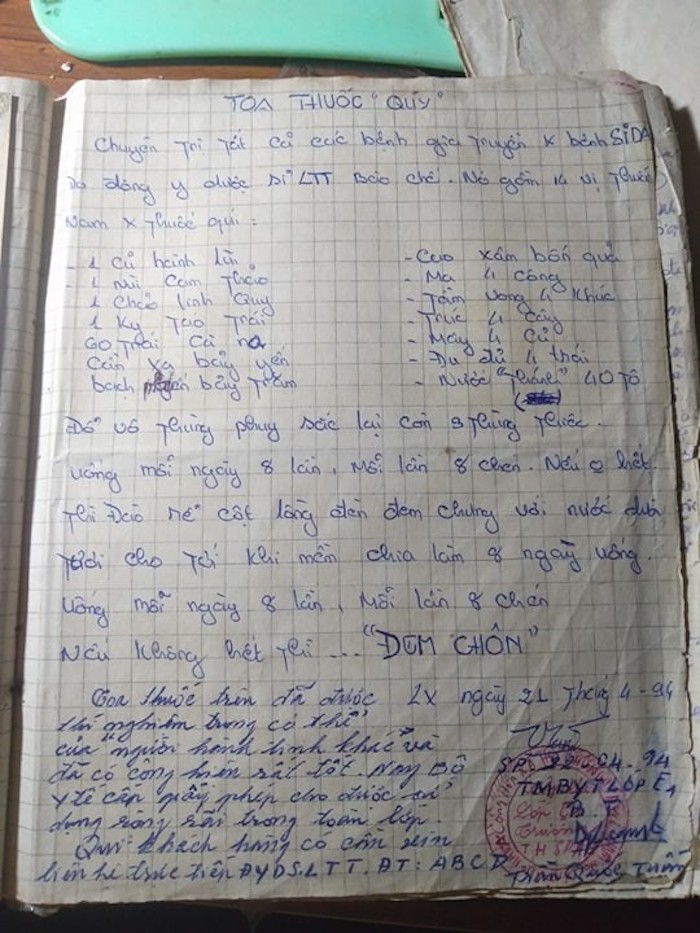 TOA THUỐC "QUÝ"
Chuyên trị tất cả các bệnh gia truyền x bệnh SIDA
Do đông y dược sĩ LTT Bào chế. Nó gồm 14 vị thuốc
Nam x thuốc quí:
- 1 Củ hành lùi
- 1 nùi Cam Thảo
1 Chảo linh
1 Ky Táo Trái
60 Trái Cà na
Cần xạ bảy yến
bạch bảy trăm
- Cao xâm bốn quả
- Mạ 4 công
- Tầm vong 4 Khúc
- Trúc 4 Cây
- Mây 4 Củ
- Đu đủ 4 trái
- Nước "Thánh" 40 Tô
Đổ vô thùng phuy sắc lại còn 3 thùng thiếc.
Uống mỗi ngày 8 lần, Mỗi lần 8 chén. Nếu 0 hết.
Thì Đào rể cột lồng đèn đem chưng với nước dừa
tươi cho tới khi mềm chia làm 8 ngày uống.
Uống mỗi ngày 8 lần, Mỗi lần 8 chén
Nếu Không hết thì ... "ĐEM CHÔN"
Toa thuốc trên đã được
thí nghiệm trong cơ thể
của "người hành tinh khác" và
đã có công hiệu rất tốt. Nay Bộ
y tế cấp giấy phép cho được sử
dụng rộng rãi trong toàn lớp.
Quí khách hàng có cần xin
liên hệ trực tiếp ĐYDS.LTT. ĐT: ABCD
LX ngày 21 Tháng 4-94
SP. 22-04-94
TM.BYT LỚP E1
B.T
Trần Quốc Tuấn